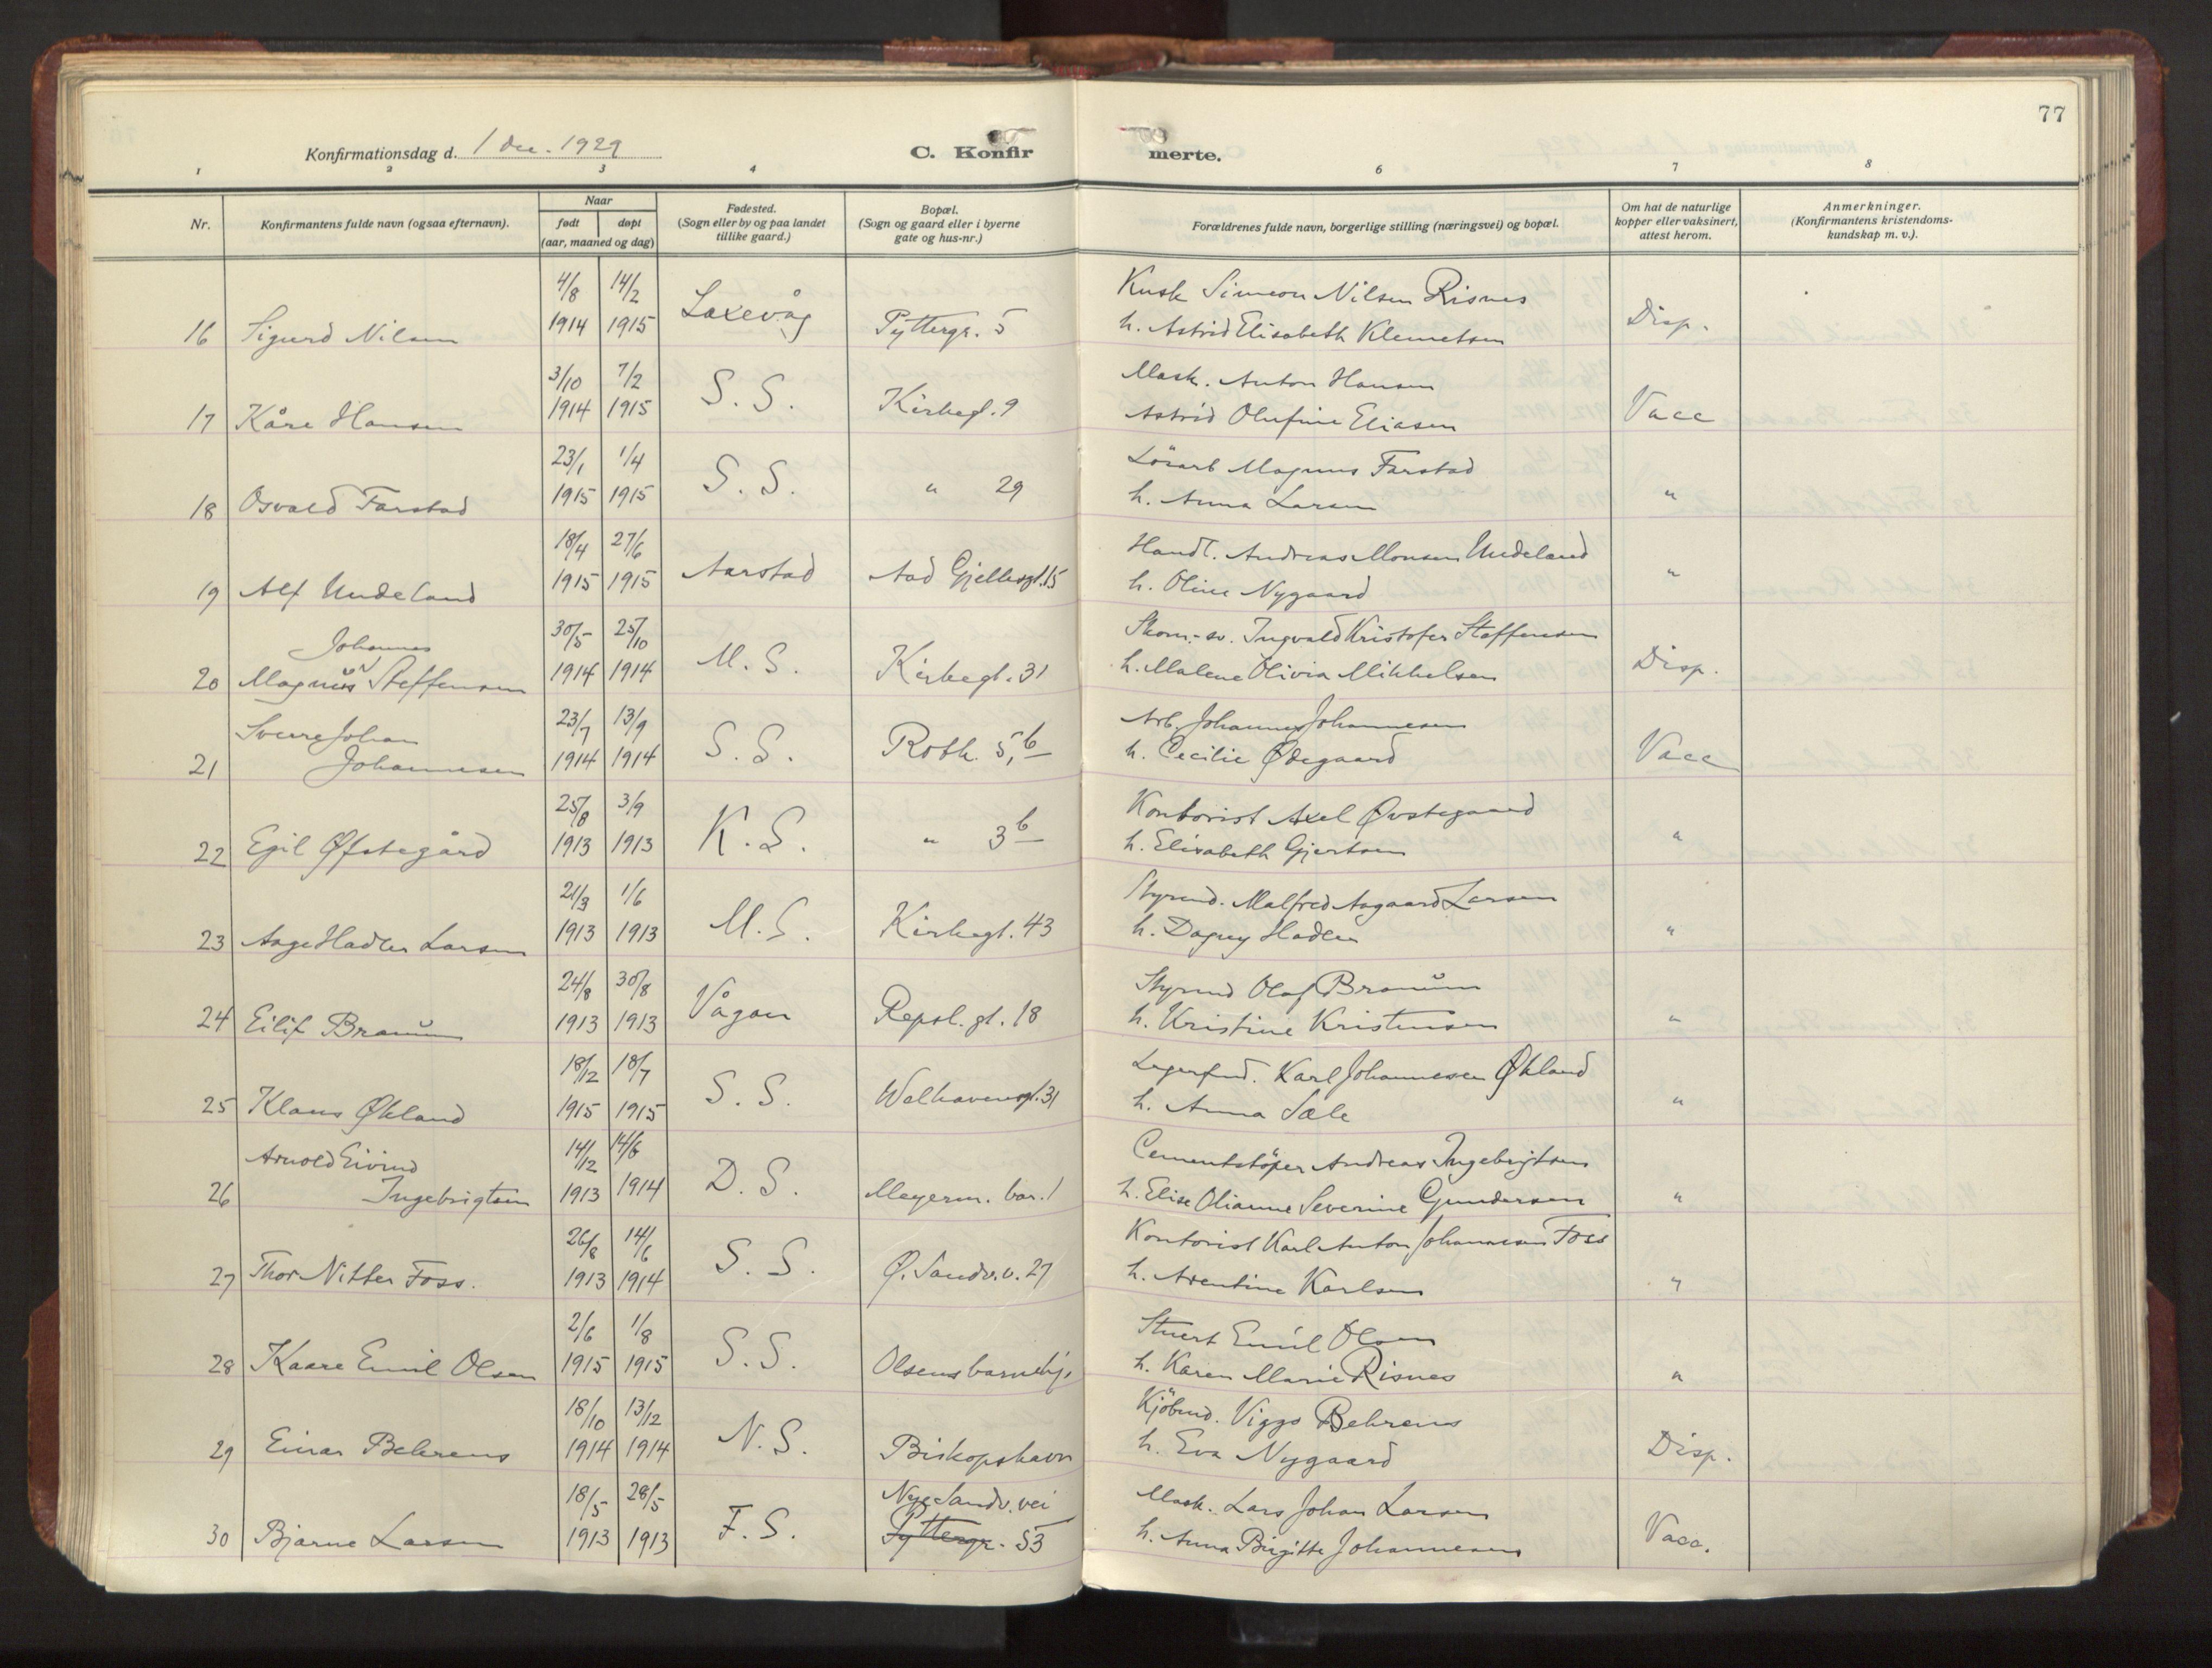 77
Konfirmationsdag d. 1 dec. 1929
C. Konfirmerte.
1 2 3 4 6 7 8
Nr.
Konfirmantens fulde navn (ogsaa efternavn).
Naar
født døpt
(aar, maaned og dag)
Fødested.
(Sogn eller by og paa landet
tillike gaard.)
Bopæl.
(Sogn og gaard eller i byerne
gate og hus-nr.)
Forældrenes fulde navn, borgerlige stilling (næringsvei) og bopæl.
Om hat de naturlige
kopper eller vaksinert,
attest herom.
Anmerkninger.
(Konfirmantens kristendoms-
kundskap m. v.).
4/8 14/2 Laxevåg Kusk Simeon Nilsen Risnes
16 Sigurd Nilsen 1914 1915 Pyttergr. 5 h. Astrid Elisabeth Klemetsen Disp.
3/10 7/2 S. S. Mask. Anton Hansen
17 Kåre Hansen 1914 1915 Kirkegt. 9 Astrid Olufine Eliasen Vacc
23/1 1/4 S. S. Lösarb Magnus Farstad
18 Osvald Farstad 1915 1915 " 29 h. Anna Larsen "
18/4 27/6 Aarstad Handl. Andreas Monsen Undeland
19 Alf Undeland 1915 1915 Aad Gjellesgt. 15 h. Oline Nygaard "
Johannes 30/5 25/10 M. S. Skom.-sv. Ingvald Kristofer Steffensen
20 Magnus Steffensen 1914 1914 Kirkegt. 31 h. Malene Olivia Mikkelsen Disp.
Sverre Johan 23/7 13/9 S. S. Arb. Johannes Johannesen
21 Johannesen 1914 1914 Roth. 5, b h. Cecilie Ødegaard Vacc
25/8 3/9 K. S. Kontorist Axel Øvstegaard
22 Egil Øfstegård 1913 1913 " 3 b h. Elisabeth Gjertsen "
21/3 1/6 M. S. Styrmd. Malfred Aagaard Larsen
23 Aage Hadler Larsen 1913 1913 Kirkegt. 43 h. Dagny Hadler "
24/8 30/8 Vågan Styrmd Olaf Bramŭm
24 Eilif Bramŭm 1913 1913 Repsl. gt. 18 h. Kristine Kristensen "
18/12 18/7 S. S. Lagerfmd. Karl Johannesen Økland
25 Klaus Økland 1915 1915 Welhavensgt. 31 h. Anna Sæle "
Arnold Eivind 14/12 14/6 D. S. Cementstöper Andreas Ingebrigtsen
26 Ingebrigtsen 1913 1914 Meyerm. bar. 1 h. Elise Olianne Severine Gundersen "
26/8 14/6 S. S. Kontorist Karl Anton Johannesen Foss
27 Thor Nitter Foss. 1913 1914 Ø. Sandv. v. 27 h. Arentine Karlsen "
2/6 1/8 S. S. Stuert Emil Olsen
28 Kaare Emil Olsen 1915 1915 Olsens barnehj. h. Karen Marie Risnes "
18/10 13/12 N. S. Kjöbmd. Viggo Behrens
29 Einar Behrens 1914 1914 Biskopshavn h. Eva Nygaard Disp.
18/5 28/5 F. S. Nye Sandv. vei Mask. Lars Johan Larsen
30 Bjarne Larsen 1913 1913 Pyttergr. 53 h. Anna Birgitte Johannesen Vacc.